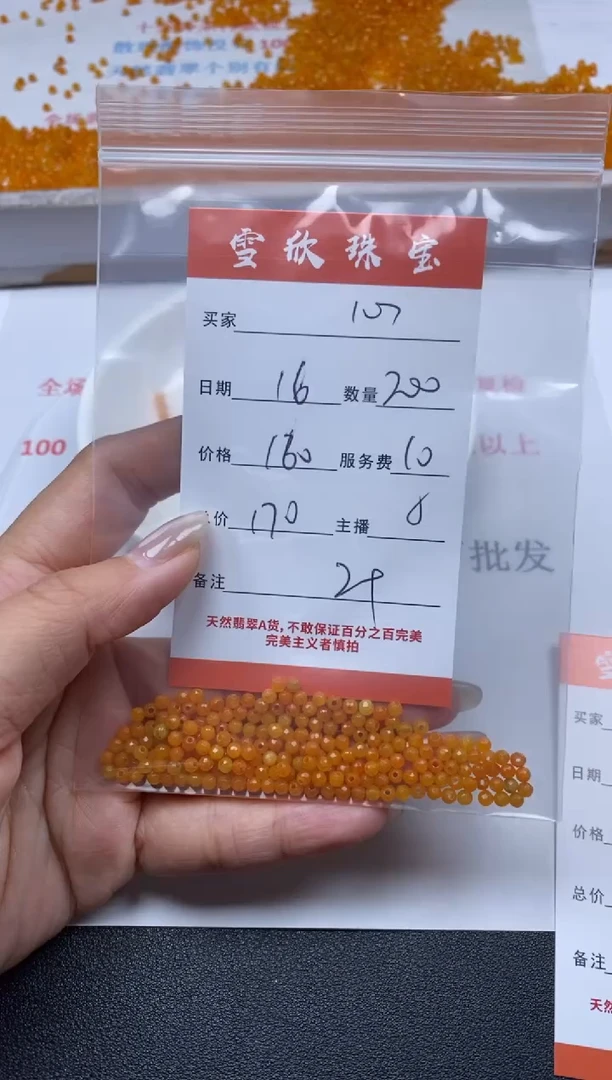 雪欣珠宝
买家 107
日期 16 数量 200
价格 160 服务费 10
总价 170 主播 8
备注
天然翡翠A货,不敢保证百分之百完美
完美主义者慎拍
全场
100
以上
批发
买家
日期
价格
总价
备注
天然